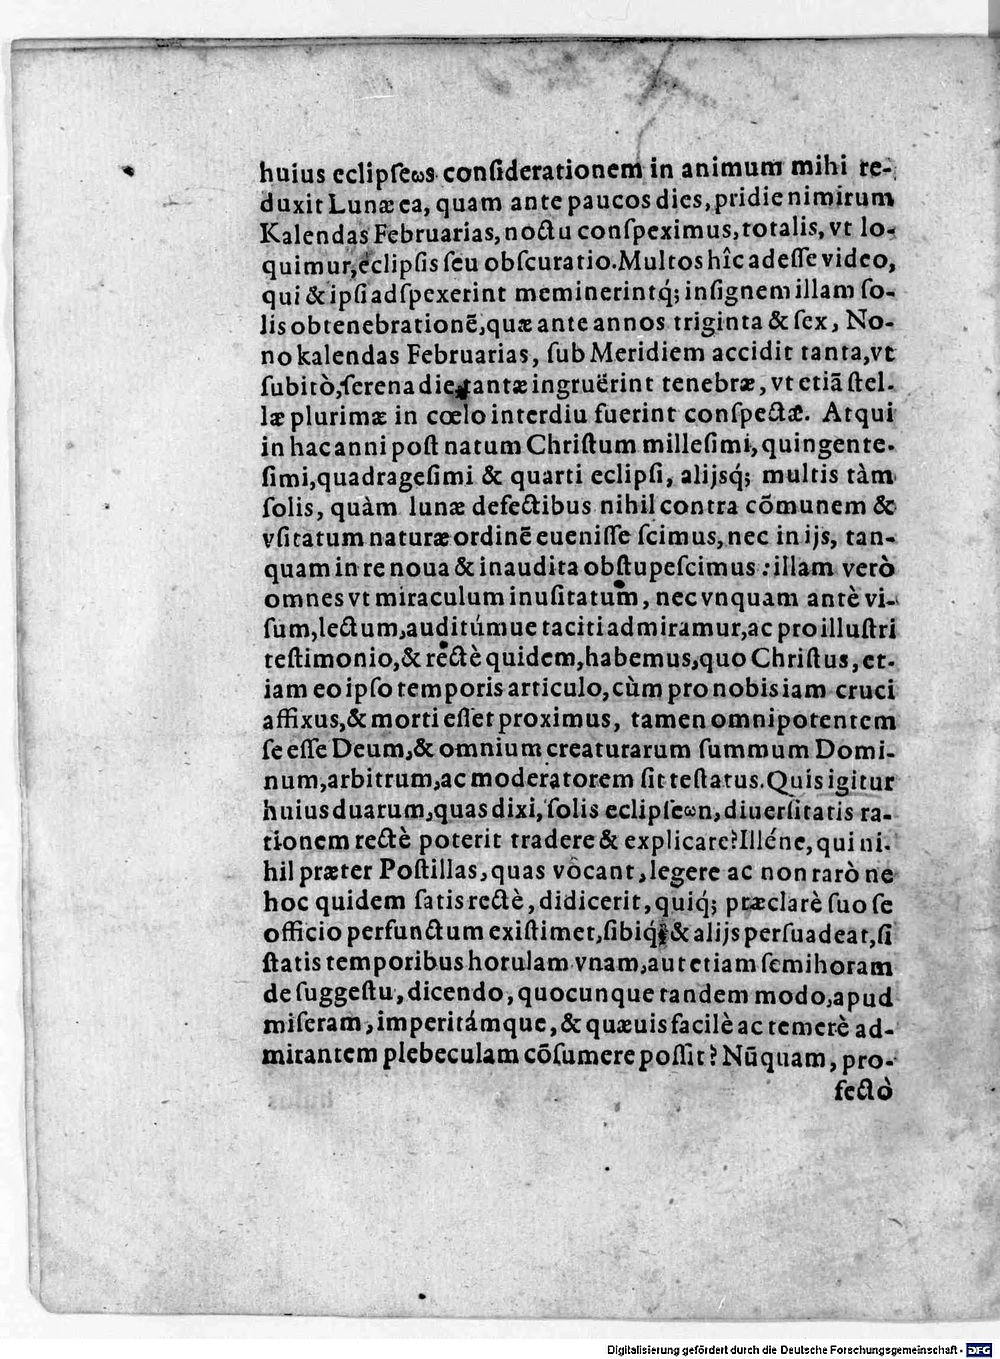 huius eclipſeωs conſiderationem in animum mihi re-
duxit Lunæ ea, quam ante paucos dies, pridie nimirum
Kalendas Februarias, noctu conſpeximus, totalis, vt lo-
quimur, eclipſis ſeu obſcuratio. Multos hîc adeſſe video,
qui & ipſi adſpexerint meminerintq́; inſignem illam ſo-
lis obtenebrationẽ, quæ ante annos triginta & ſex, No-
no kalendas Februarias, ſub Meridiem accidit tanta, vt
ſubitò, ſerena die, tantæ ingruërint tenebræ, vt etiã ſtel-
læ plurimæ in cœlo interdiu fuerint conſpectæ. Atqui
in hac anni poſt natum Chriſtum milleſimi, quingente-
ſimi, quadrageſimi & quarti eclipſi, alijsq́; multis tàm
ſolis, quàm lunæ defectibus nihil contra cõmunem &
vſitatum naturæ ordinẽ eueniſſe ſcimus, nec in ijs, tan-
quam in re noua & inaudita obſtupeſcimus: illam verò
omnes vt miraculum inuſitatum, nec vnquam antè vi-
ſum, lectum, auditúmue taciti admiramur, ac pro illuſtri
teſtimonio, & rectè quidem, habemus, quo Chriſtus, et-
iam eo ipſo temporis articulo, cùm pro nobis iam cruci
affixus, & morti eſſet proximus, tamen omnipotentem
ſe eſſe Deum, & omnium creaturarum ſummum Domi-
num, arbitrum, ac moderatorem ſit teſtatus. Quis igitur
huius duarum, quas dixi, ſolis eclipſeωn, diuerſitatis ra-
tionem rectè poterit tradere & explicare? Illéne, qui ni-
hil præter Poſtillas, quas vocant, legere ac non rarò ne
hoc quidem ſatis rectè, didicerit, quiq́; præclarè ſuo ſe
officio perfunctum exiſtimet, ſibiq́; & alijs perſuadeat, ſi
ſtatis temporibus horulam vnam, aut etiam ſemihoram
de ſuggeſtu, dicendo, quocunque tandem modo, apud
miſeram, imperitámque, & quæuis facilè ac temerè ad-
mirantem plebeculam cõſumere poſſit? Nũquam, pro-
fectò
Digitalisierung gefördert durch die Deutsche Forschungsgemeinschaft - DFG